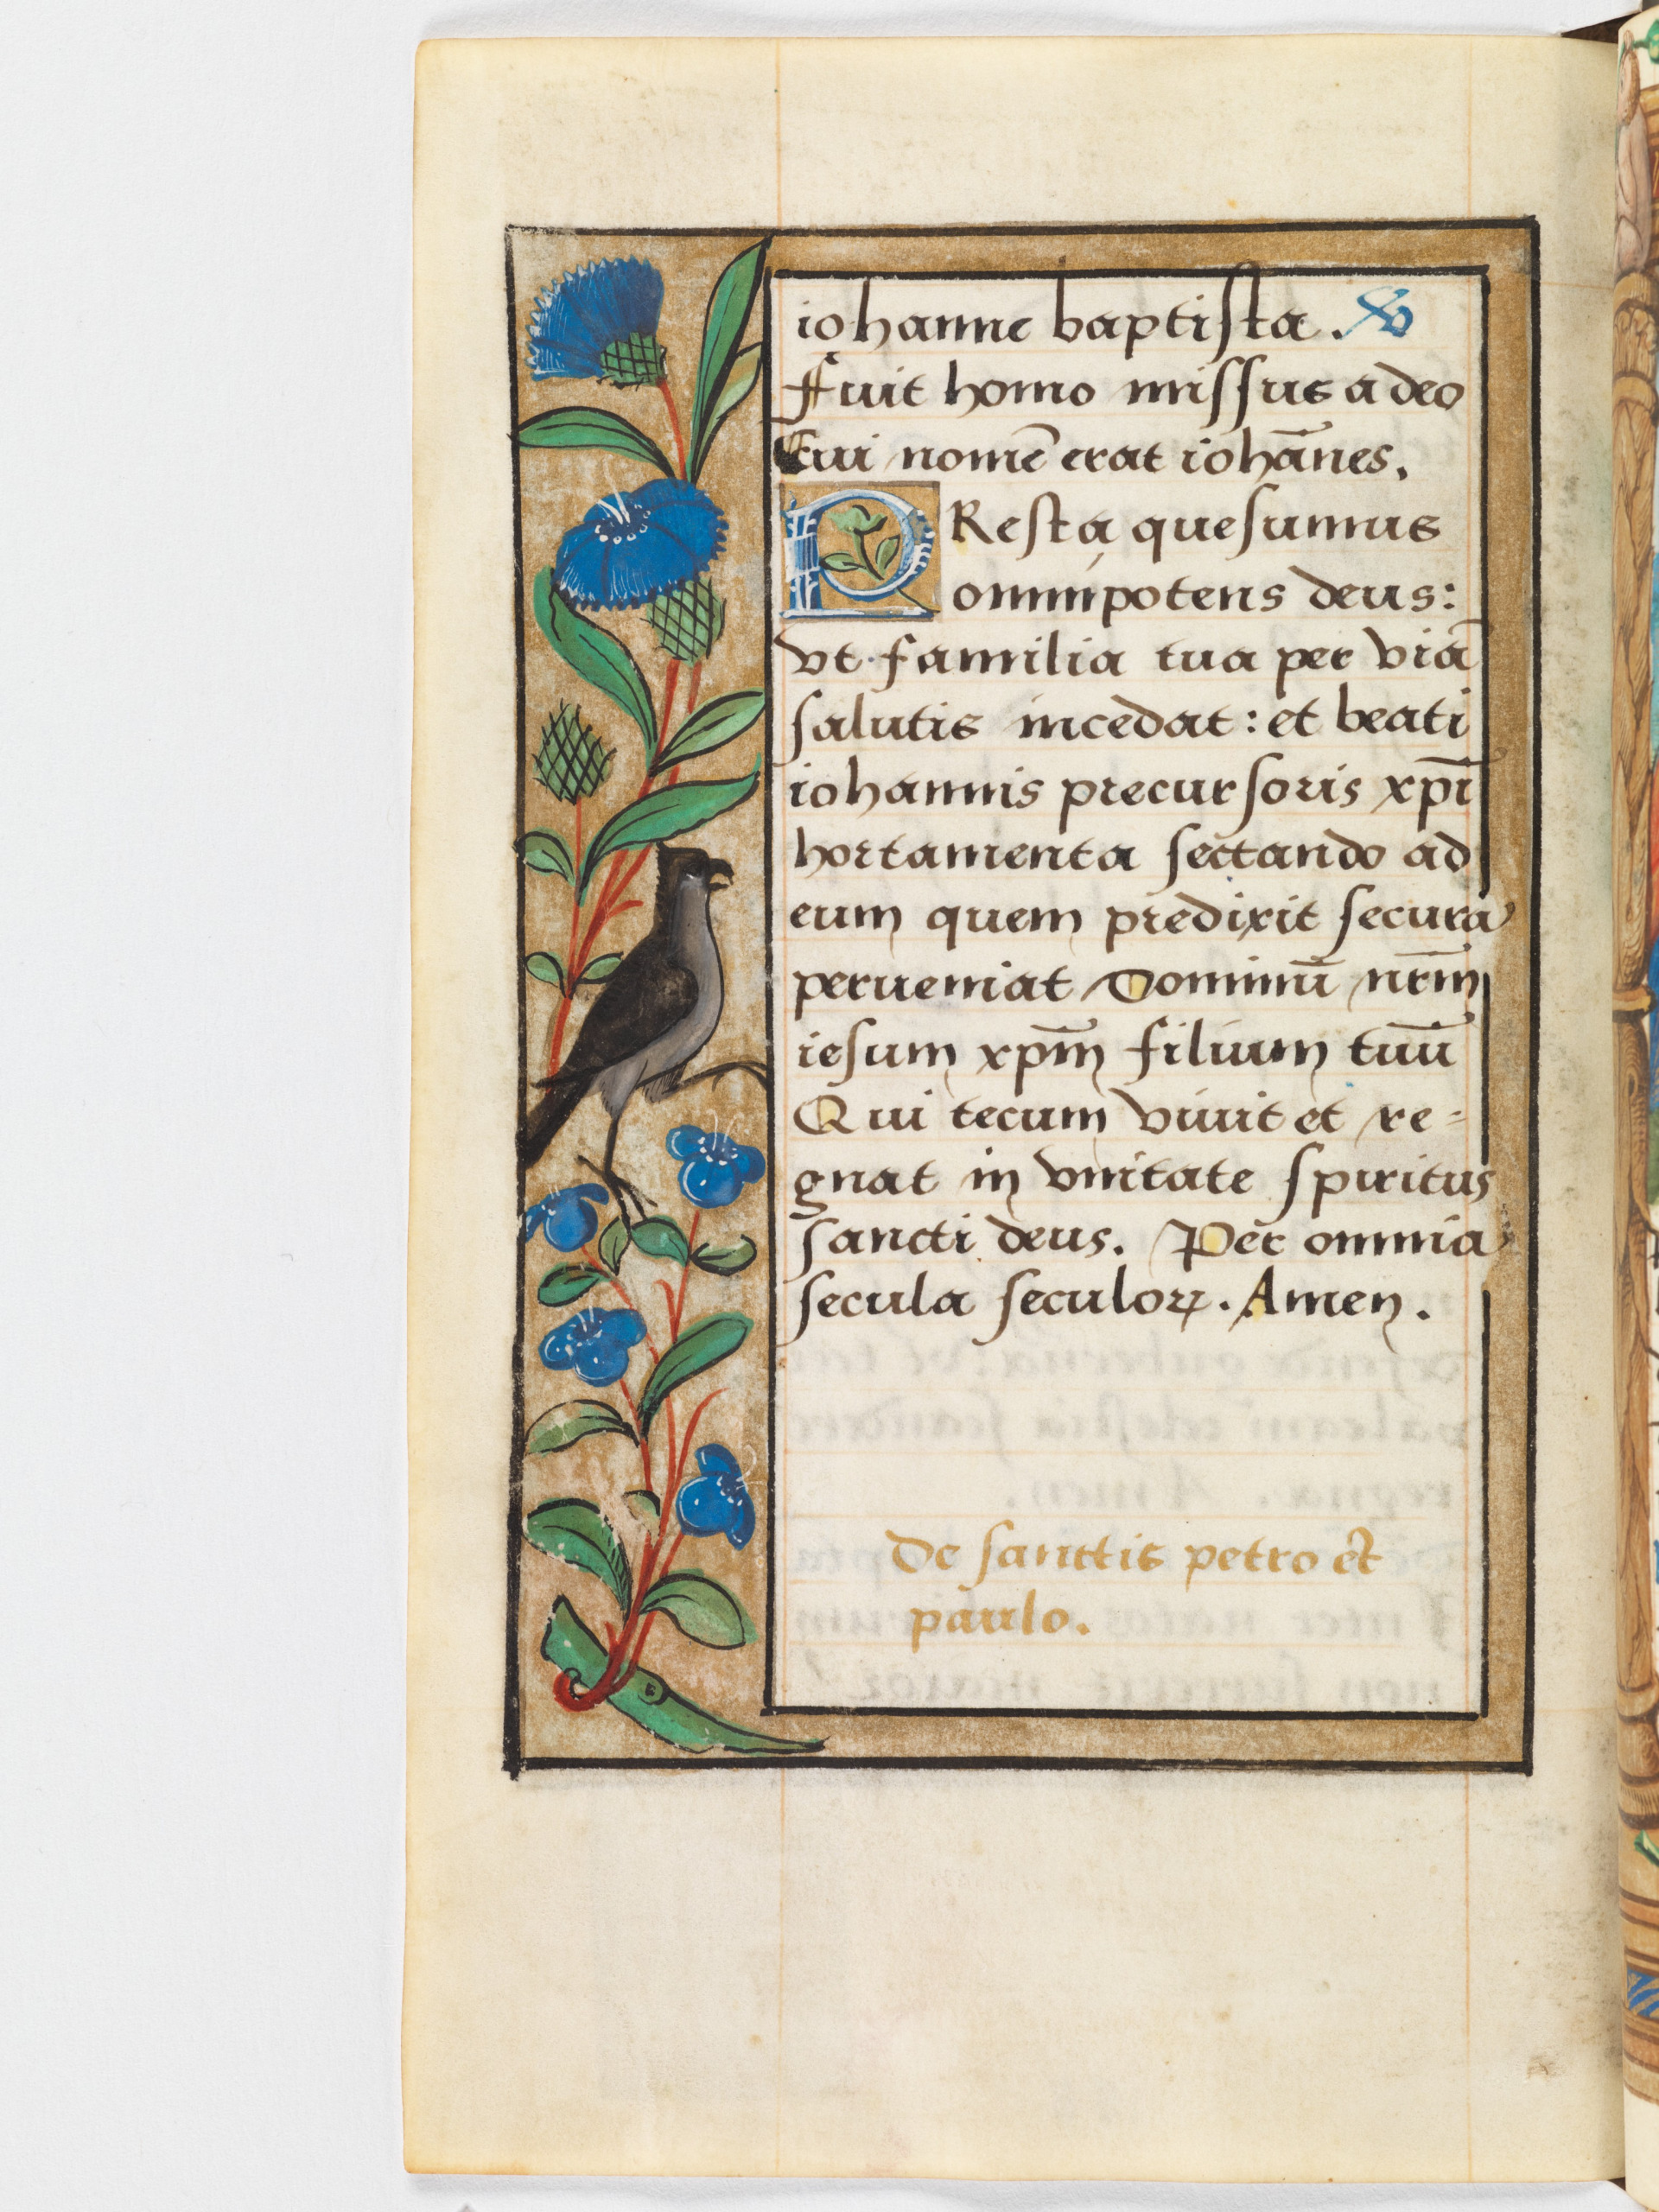 iohanne baptiſta. ℣
Fuit homo miſſus a deo
Cui nomē erat iohānes.
PReſta queſumus
omnipotens deus:
vt familia tua per viā
ſalutis incedat: et beati
iohannis precurſoris xp̄i
hortamenta ſectando ad
eum quem predixit ſecura
perueniat Dominū nr̄m
ieſum xp̄m filium tuū
Qui tecum viuit et re-
gnat in vnitate ſpiritus
ſancti deus. Per omnia
ſecula ſeculoꝝ. Amen.
De ſanctis petro et
paulo.